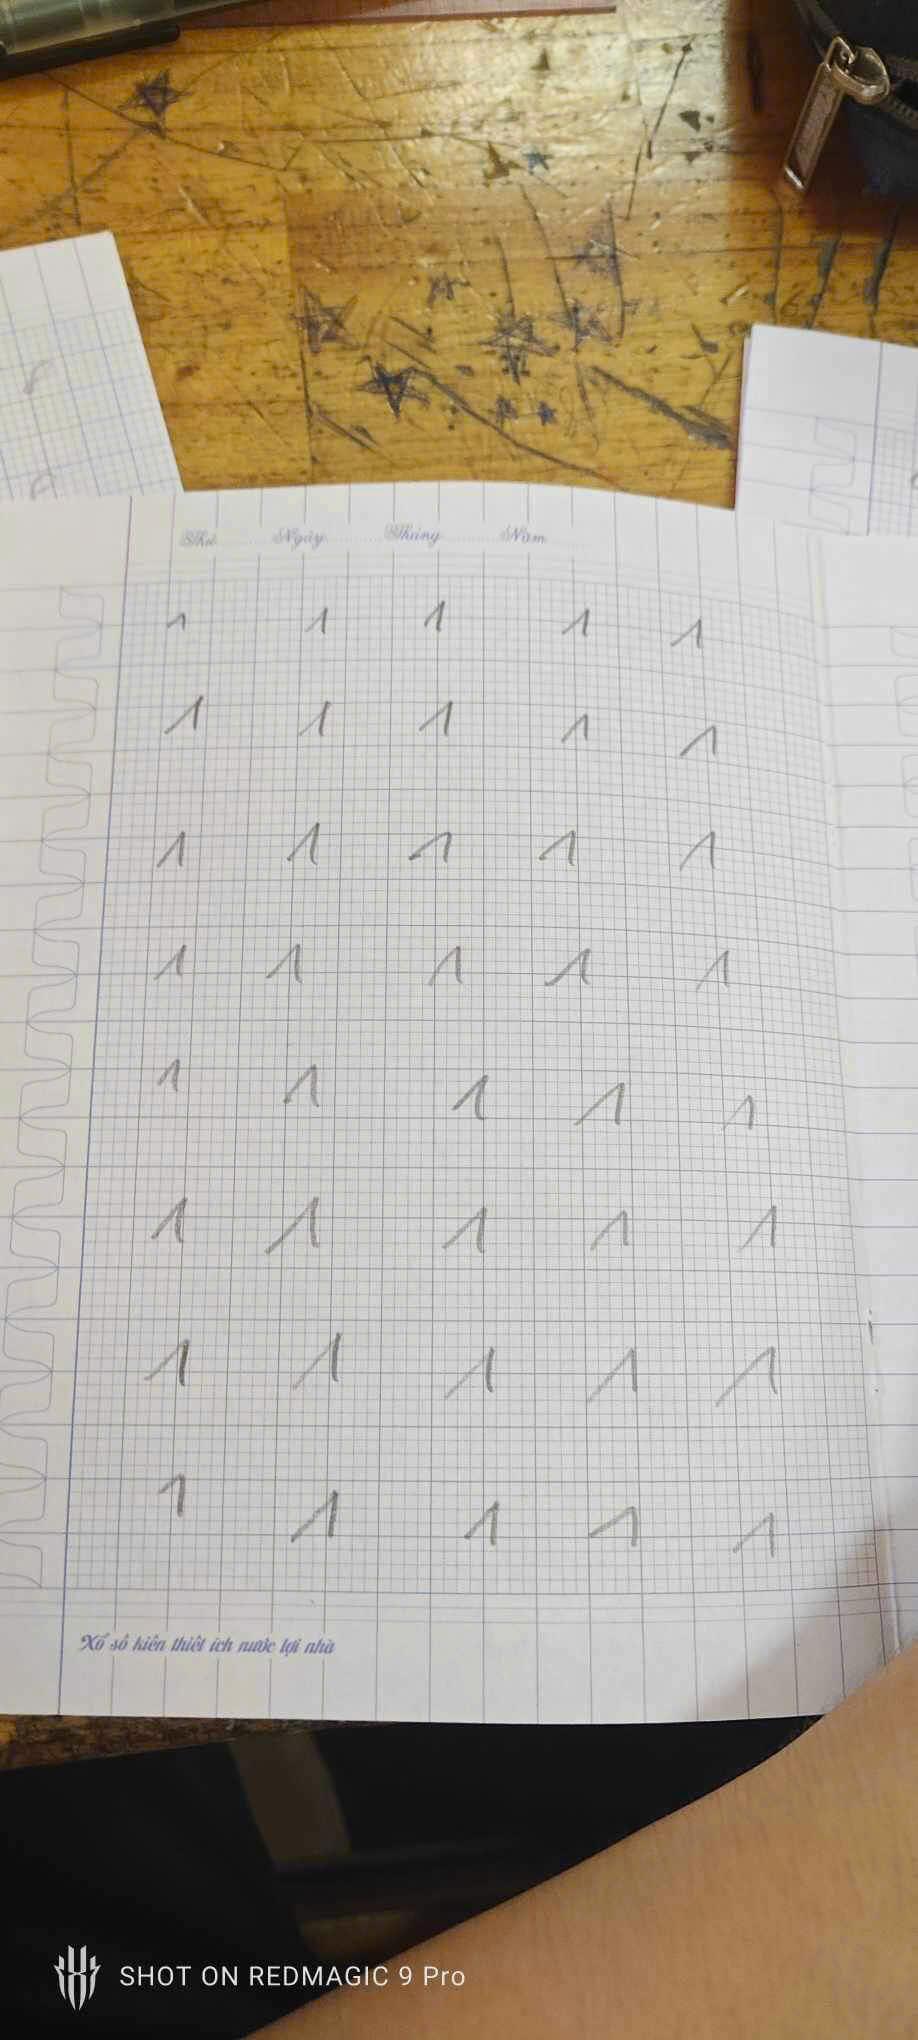 Thứ Ngày Tháng Năm
1 1 1 1 1
1 1 1 1 1
1 1 1 1 1
1 1 1 1 1
1 1 1 1 1
1 1 1 1 1
1 1 1 1 1
1 1 1 1 1
Xổ số kiến thiết ích nước lợi nhà
SHOT ON REDMAGIC 9 Pro